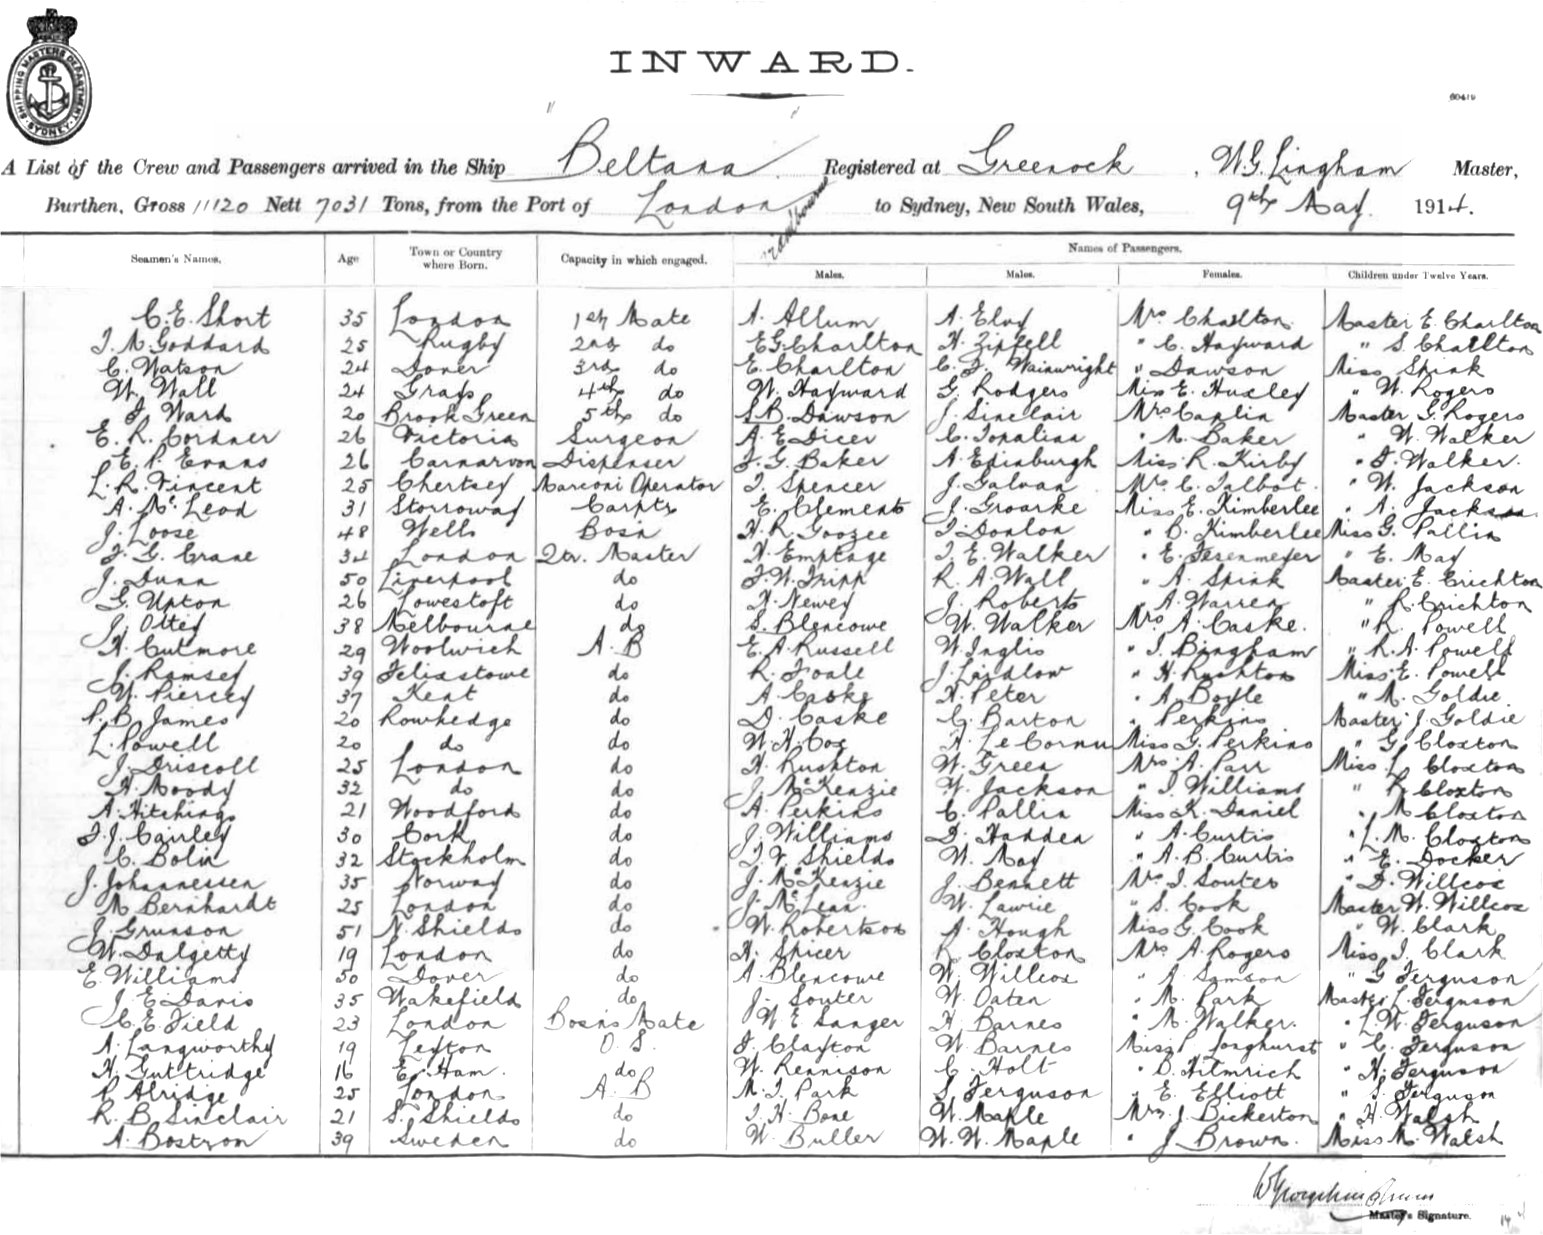 SHIPPING MASTERS DEPARTMENT SYDNEY
INWARD.
60419
A List of the Crew and Passengers arrived in the Ship "Beltana" Registered at Greenock, W.G. Lingham Master,
Burthen, Gross 11120 Nett 7031 Tons, from the Port of London to Sydney, New South Wales, 9th May 1914.
Seamen's Names. Age Town or Country where Born. Capacity in which engaged. Names of Passengers.
Males. Males. Females. Children under Twelve Years.
C. E. Short 35 London 1st Mate A. Allum A. Eloy Mrs Charlton Master E. Charlton
T. M. Goddard 25 Rugby 2nd do E.G. Charlton H. Zipfell " C. Hayward " S. Charlton
C. Watson 24 Dover 3rd do E. Charlton C. F. Wainwright " Dawson Miss Spink
W. Wall 24 Grays 4th do W. Hayward G. Rodgers Miss E. Huxley " W. Rogers
F. Ward 20 Brook Green 5th do S.B. Dawson J. Sinclair Mrs Caplin Master G. Rogers
E. R. Cordner 26 Victoria Surgeon A. E. Dicer C. " M. Baker " W. Walker
E. P. Evans 26 Carnarvon Dispenser F. G. Baker A. Edinburgh Miss R. Kirby " F. Walker.
L. R. Vincent 25 Chertsey Marconi Operator T. Spencer J. Galvan Mrs C. Talbot. " W. Jackson
A. McLeod 31 Storroway Carptr E. Clements J. Groarke Miss E. Kimberlee " A. Jackson
J. Loose 48 Wells Bosn H. R. Goozee T. Donlon " B. Kimberlee Miss G. Pallin
F. G. Crane 34 London Qtr. Master H. Emptage T. E. Walker " E. Fesenmeyer " E. May
J. Dunn 50 Liverpool do F. W. Tripp R. A. Wall " A. Spink Master E. Crichton
G. Upton 26 Lowestoft do H. Newey J. Roberts " A. Warren " R. Crichton
J. Ottey 38 Melbourne do S. Blencowe W. Walker Mrs A. Caske. " R. Powell
H. Culmore 29 Woolwich A. B E. A. Russell W. Inglis " T. Bingham " R. A. Powell
J. Ramsey 39 Felixstowe do R. Foale J. Laidlow " H. Rushton Miss E. Powell
W. Piercey 37 Kent do A. Caske H. Peter " A. Boyle " M. Goldie
P. B. James 20 Rowhedge do D. Caske C. Barton " Perkins Master J. Goldie
L. Powell 20 do do W. H. Cox H. Le Cornu Miss G. Perkins " G. Cloxton
J. Driscoll 25 London do H. Rushton W. Green Mrs A. Parr Miss L. Cloxton
H. Moody 32 do do J. McKenzie W. Jackson " T. Williams " R. Cloxton
A. Hitchings 21 Woodford do A. Perkins C. Pallin Miss K. Daniel " M Cloxton
T. J. Cairley 30 Cork do J. Williams D. Hadden " A. Curtis " L. M. Cloxton
C. Bolin 32 Stockholm do T. V. Shields W. May " A. B. Curtis " E. Docker
J. Johannessen 35 Norway do J. McKenzie J. Bennett Mrs I. Souter " D. Willcox
M Bernhardt 25 London do J. McLean. W. Lawrie " S. Cook Master W. Willcox
J. Grunson 51 N. Shields do W. Robertson A. Hough Miss G. Cook " W. Clark
W. Dalgetty 19 London do H. Spicer R. Cloxton Mrs A. Rogers Miss I. Clark
E. Williams 50 Dover do A. Blencowe W. Willcox " A. Samson " G Ferguson
J. E Davis 35 Wakefield do J. Souter W. Oaten " M. Park Master L. Ferguson
C. E. Field 23 London Bosns Mate W. E. Sanger H. Barnes " M. Walker. " L. W. Ferguson
A. Langworthy 19 Lexton O. S. F. Clayton W. Barnes Miss P. Longhurst " C. Ferguson
H. Guttridge 16 E. Ham. do W. Rennison C. Holt " D. Hilmrich " H. Ferguson
C Alridge 25 London A. B M. T. Park S. Ferguson " E. Elliott " S. Ferguson
R. B. Sinclair 21 S. Shields do T. H. Bone W. Maple Mrs J. Bickerton " H. Walsh
A. Bostrom 39 Sweden do W. Buller W. W. Maple " J Brown. Miss M. Walsh
Master's Signature.